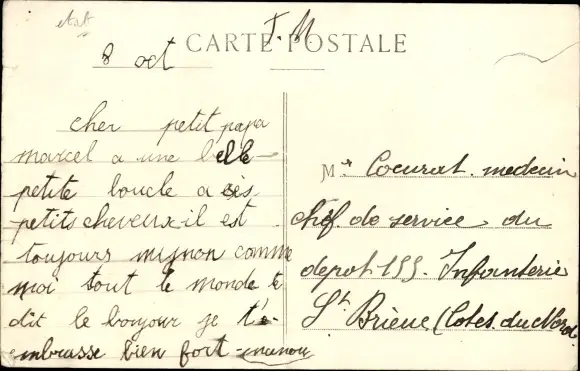 etat
F. M.
CARTE POSTALE
8 oct
cher petit papa
marcel a une belle
petite boucle a ses
petits cheveux il est
toujours mignon comme
moi tout le monde te
dit le bonjour je t'e
mbrasse bien fort manou
Mr Coeurat. medecin
chef de service du
depot 155. Infanterie
St Brieuc (Cotes. du Nord